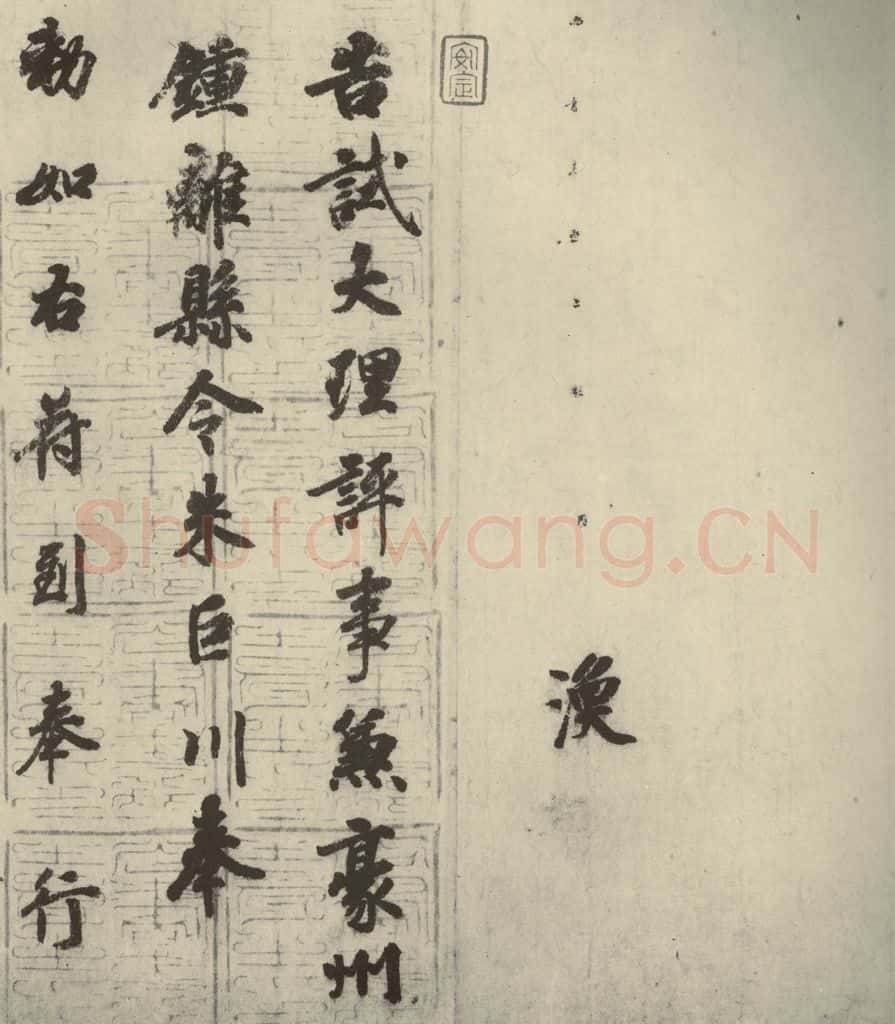 渙
安定
告試大理評事兼豪州
鍾離縣令朱巨川奉
勅如右符到奉行
Shufawang.CN